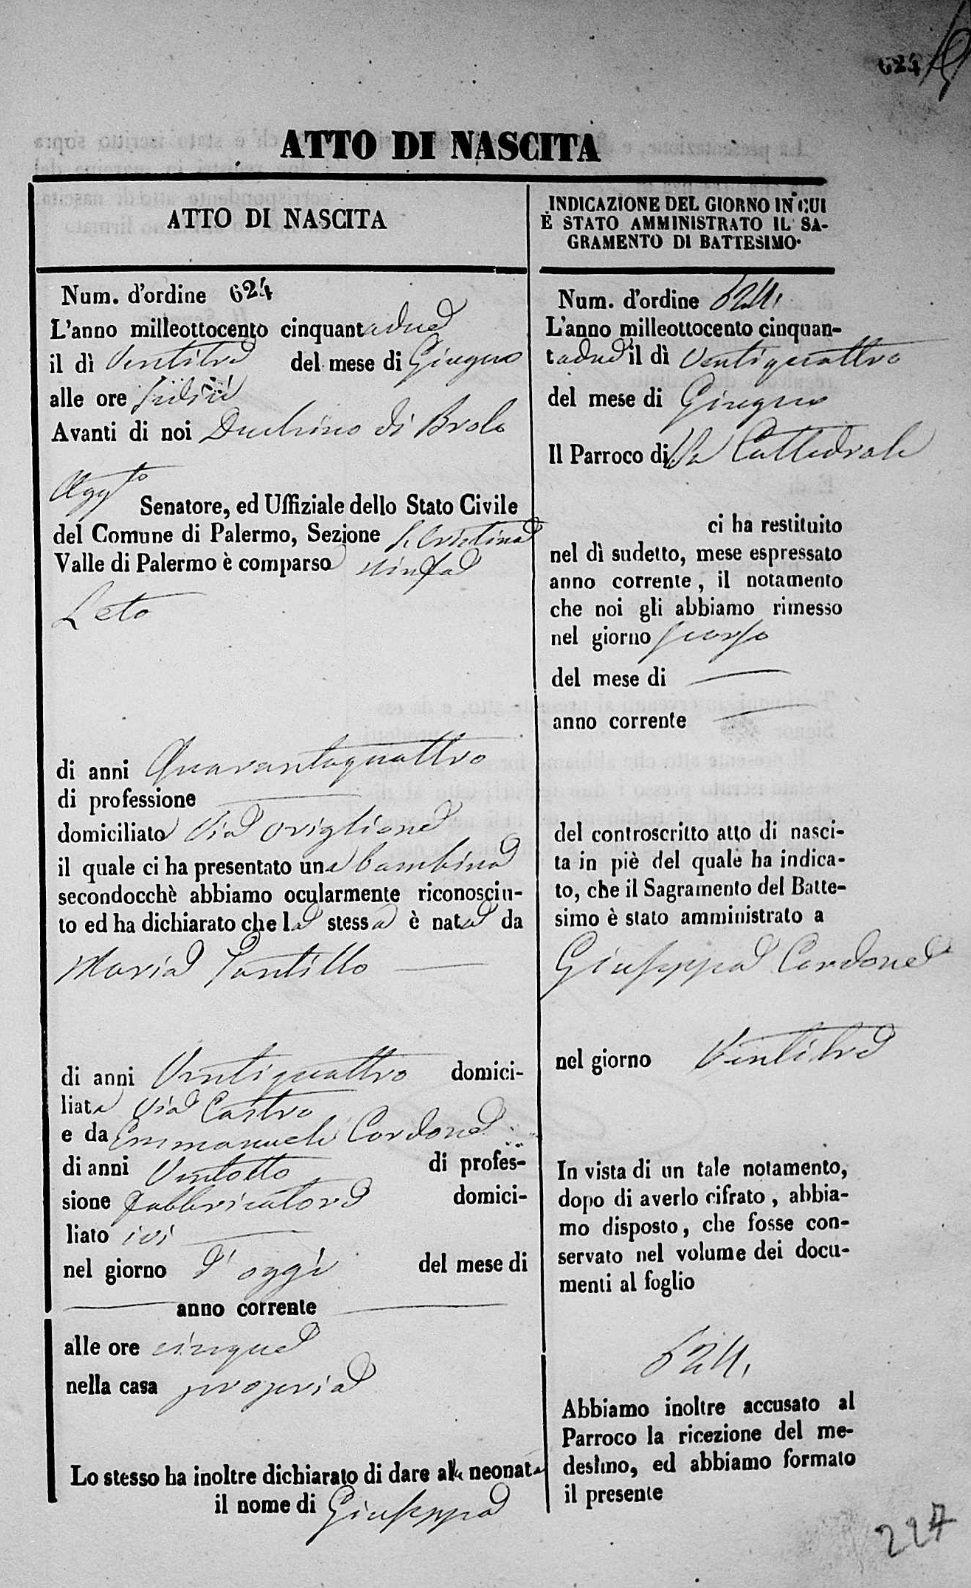 624
ATTO DI NASCITA
ATTO DI NASCITA
Num. d'ordine 624
L'anno milleottocento cinquantadue
il dì Ventitre del mese di Giugno
alle ore
Avanti di noi Duchino di Brolo
Aggto
Senatore, ed Uffiziale dello Stato Civile
del Comune di Palermo, Sezione S. Cristina
Valle di Palermo è comparsa Ninfa
Leto
di anni Quarantaquattro
di professione
domiciliata Via Origlione
il quale ci ha presentato una bambina
secondocchè abbiamo ocularmente riconosciu-
to ed ha dichiarato che la stessa è nata da
Maria Pantillo
di anni Ventiquattro domici-
liata Via Castro
e da Emmanuele Cordone
di anni Ventotto di profes-
sione fabbricatore domici-
liato ivi
nel giorno d'oggi del mese di
anno corrente
alle ore cinque
nella casa propria
Lo stesso ha inoltre dichiarato di dare alla neonata
il nome di Giuseppa
INDICAZIONE DEL GIORNO IN CUI
È STATO AMMINISTRATO IL SA-
GRAMENTO DI BATTESIMO
Num. d'ordine 624
L'anno milleottocento cinquan-
tadue il dì Ventiquattro
del mese di Giugno
Il Parroco di la Cattedrale
ci ha restituito
nel dì sudetto, mese espressato
anno corrente, il notamento
che noi gli abbiamo rimesso
nel giorno scorso
del mese di
anno corrente
del controscritto atto di nasci-
ta in piè del quale ha indica-
to, che il Sagramento del Batte-
simo è stato amministrato a
Giuseppa Cordone
nel giorno Ventitre
In vista di un tale notamento,
dopo di averlo cifrato, abbia-
mo disposto, che fosse con-
servato nel volume dei docu-
menti al foglio
624
Abbiamo inoltre accusato al
Parroco la ricezione del me-
desimo, ed abbiamo formato
il presente
227